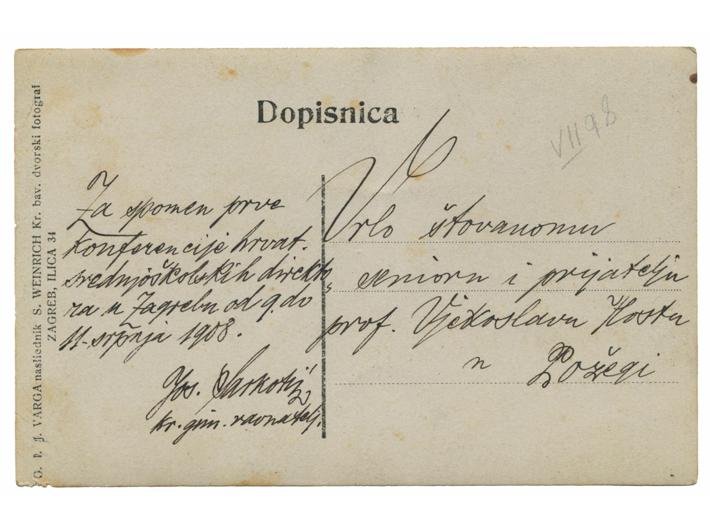 Dopisnica
VII 98
G. I. J. VARGA nasljednik S. WEINRICH Kr. bav. dvorski fotograf
ZAGREB, ILICA 34
Za spomen prve
konferencije hrvat.
srednjoškolskih direkto„
ra u Zagrebu od 9. do
11. srpnja 1908.
Jos. Sarkotić
kr. gim. ravnatelj.
Vrlo štovanomu
senioru i prijatelju
prof. Vjekoslavu Hostu
u Požegi